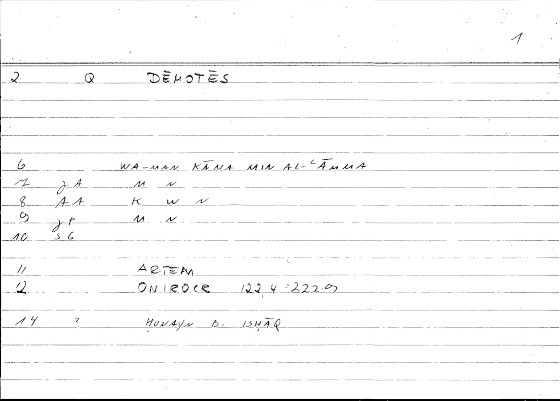 1
2 Q DĒMOTĒS
6 WA-MAN KĀNA MIN AL-ʿĀMMA
7 JA M N
8 AA K W N
9 JP M N
10 SG
11 ARTEM
12 ONIROCR 122,4 = 222.9
14 ? ḤUNAYN B. ISḤĀQ